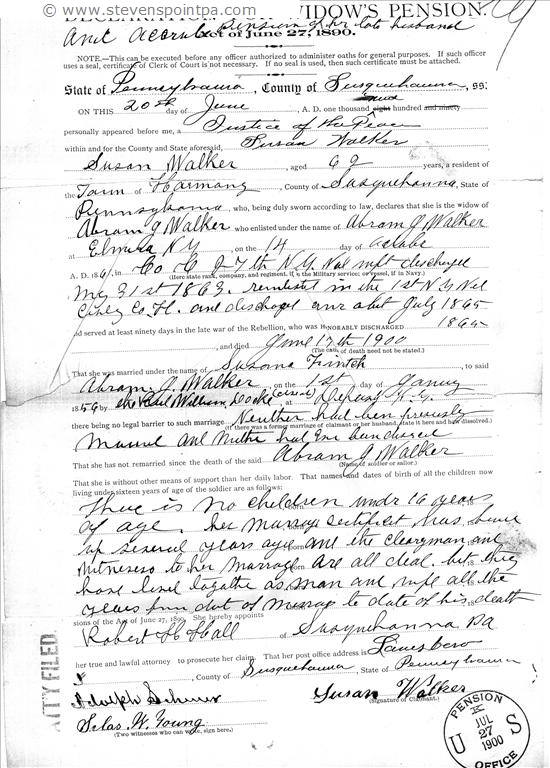 © www.stevenspointpa.com
DECLARATION WIDOW'S PENSION.
and accrued Pension of her late husband
Act of June 27, 1890.
NOTE.—This can be executed before any officer authorized to administer oaths for general purposes. If such officer
uses a seal, certificate of Clerk of Court is not necessary. If no seal is used, then such certificate must be attached.
State of Pennsylvania, County of Susquehanna, ss:
ON THIS 20th day of June, A. D. one thousand eight hundred and ninety
personally appeared before me, a Justice of the Peace
within and for the County and State aforesaid, Susan Walker
Susan Walker, aged 69 years, a resident of
the Town of Harmony, County of Susquehanna, State of
Pennsylvania who, being duly sworn according to law, declares that she is the widow of
Abram J Walker who enlisted under the name of Abram J Walker
at Elmira N Y, on the 14 day of
A. D. 1861, in Co 27th N.Y. Vol discharged
(Here state rank, company, and regiment, if in the Military service; or vessel, if in Navy.)
May 31st 1863. reenlisted in the 1st N Y
and July 1865
and served at least ninety days in the late war of the Rebellion, who was HONORABLY DISCHARGED 1865
, and died June 17th 1900
(The cause of death need not be stated.)
That she was married under the name of Susana, to said
Abram J. Walker, on the 1st day of
1856 by William, at N.Y.
there being no legal barrier to such marriage. Neither had been previously
(If there was a former marriage of claimant or her husband, state it here and how dissolved.)
married and
That she has not remarried since the death of the said Abram J Walker
(Name of soldier or sailor.)
That she is without other means of support than her daily labor. That names and dates of birth of all the children now
living under sixteen years of age of the soldier are as follows:
There is no children under 16 years
of age. her marriage certificate has been
several years ago and the clergyman and
witnesses to her marriage are all dead. but they
have lived together as man and wife all the
years from date of marriage to date of his death
sions of the Act of June 27, 1890. She hereby appoints
Robert H Hall of Susquehanna Pa
her true and lawful attorney to prosecute her claim. That her post office address is Lanesboro
, County of Susquehanna, State of Pennsylvania
Adolph
Susan Walker
(Signature of Claimant.)
Silas W. Young
(Two witnesses who can write, sign here.)
ATT'Y FILED
PENSION
JUL
27
1900
U S
OFFICE